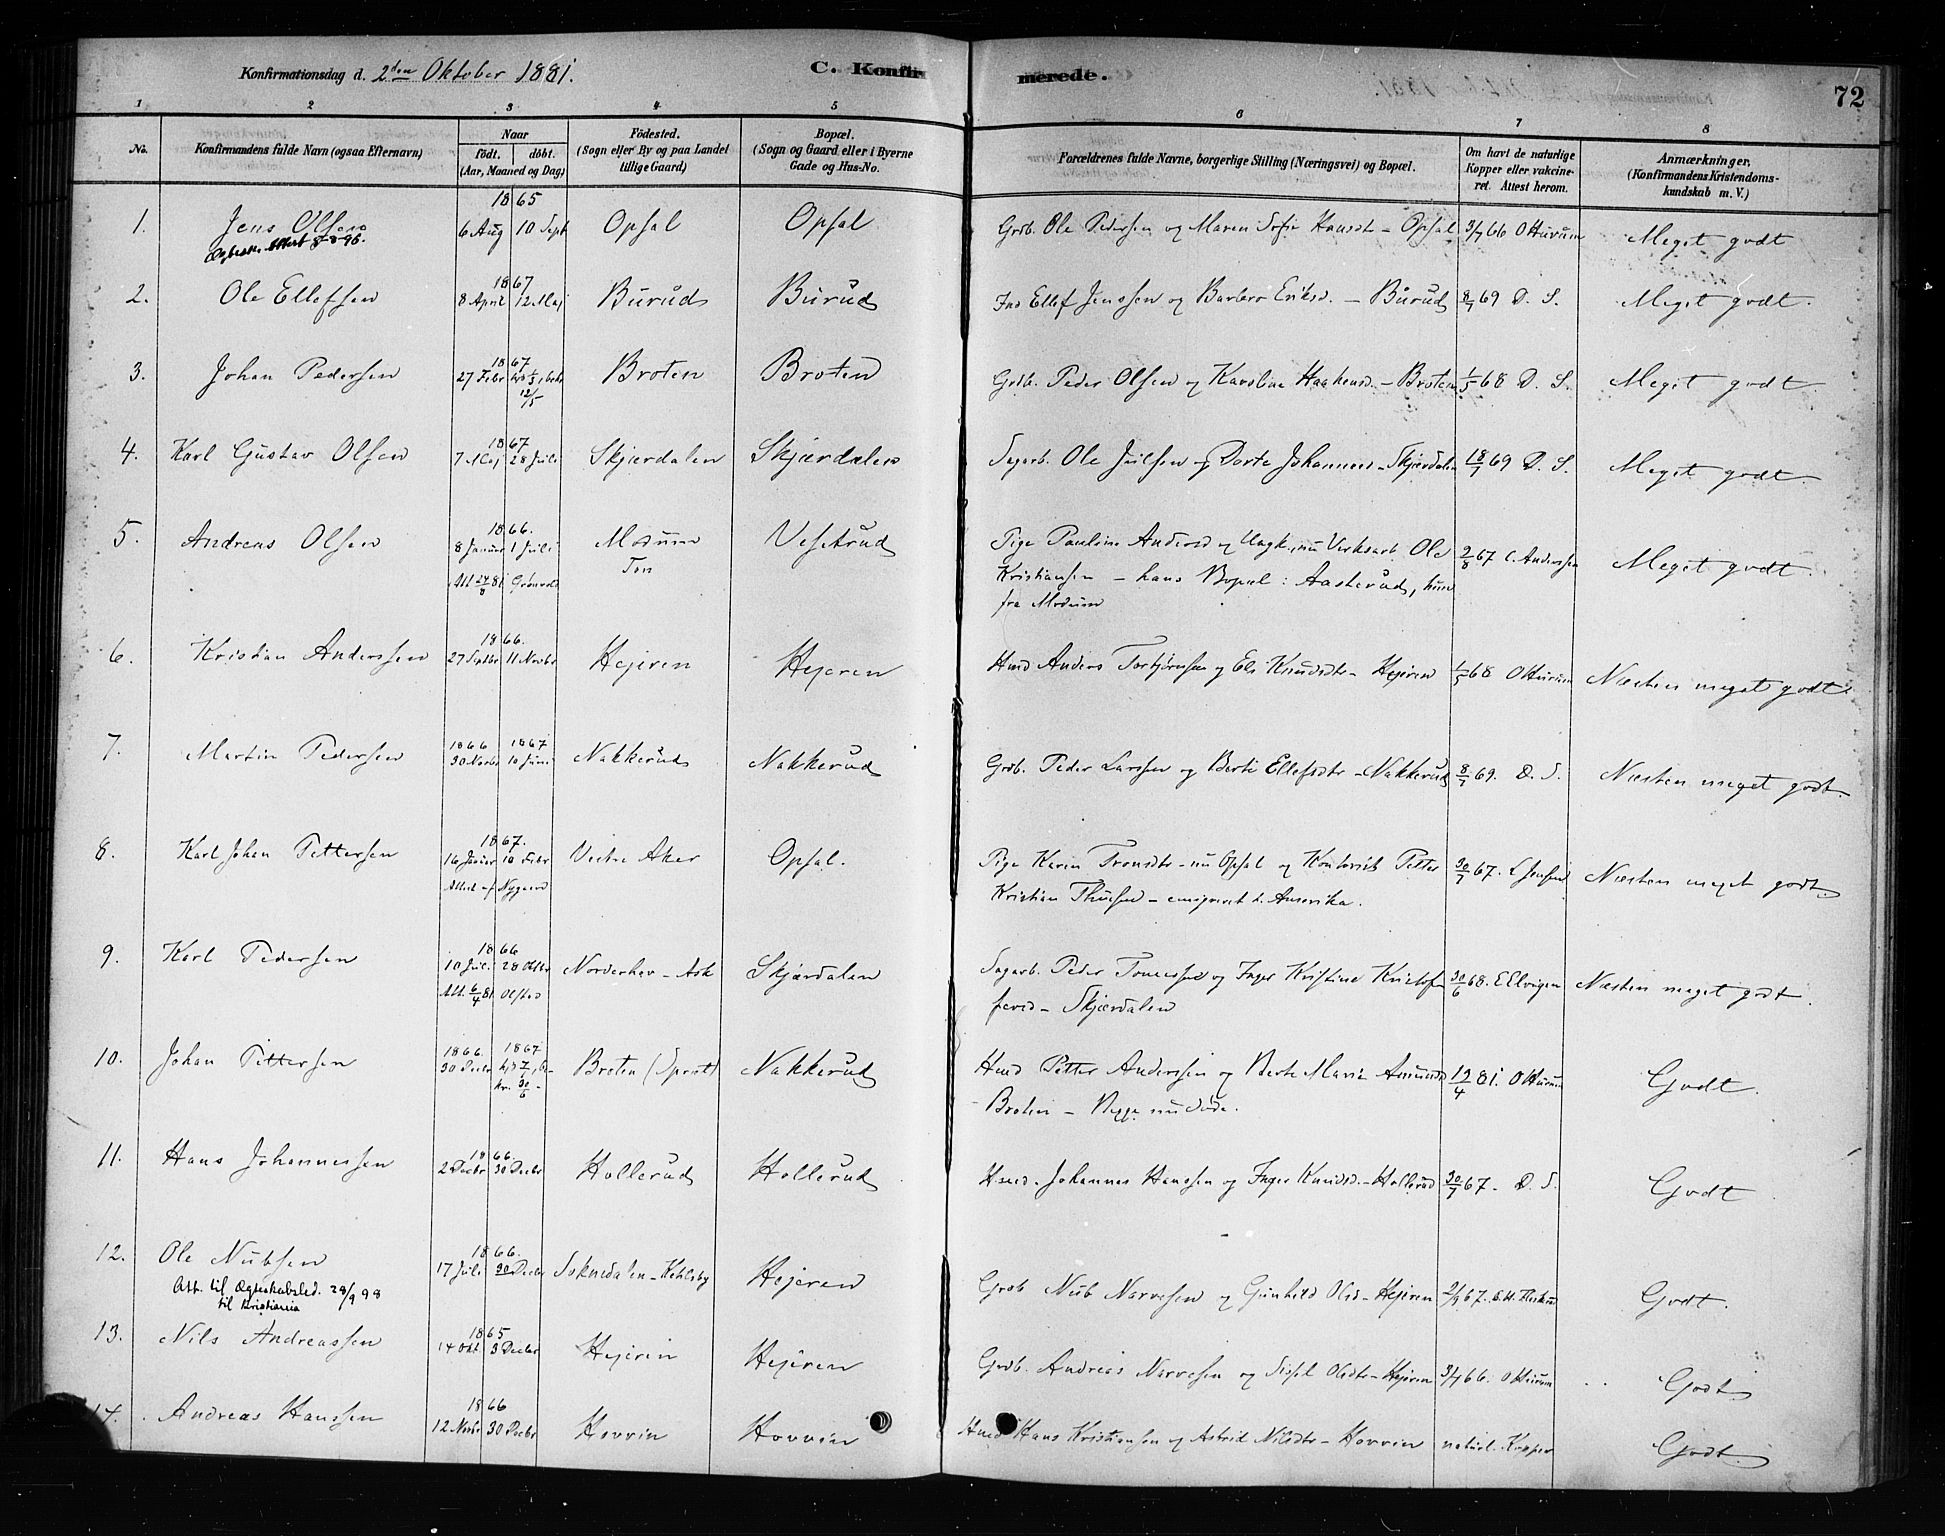 Konfirmationsdag d. 2den Oktober 1881.
C. Konfir merede.
72
1 2 3 4 5 6 7 8
No. Konfirmandens fulde Navn (ogsaa Efternavn) Naar födt. döbt. (Aar, Maaned og Dag) Födested. (Sogn eller By og paa Landet tillige Gaard) Bopæl. (Sogn og Gaard eller i Byerne Gade og Hus-No. Forældrenes fulde Navne, borgerlige Stilling (Næringsvei) og Bopæl. Om havt de naturlige Kopper eller vakcineret. Attest herom. Anmærkninger, (Konfirmandens Kristendomskundskab m. V.)
1865
1. Jens Olsen 6 Aug 10 Sept Opsal Opsal Grdb. Ole Pedersen og Maren Sofie Hansdt - Opsal 3/7 66 O Huium Meget godt
Attest 8-8-96.
1867
2. Ole Ellefsen 8 April 12 Maj Burud Burud Ind Ellef Jenssen og Barbro Eriksd. - Burud 8/7 69 D. S. Meget godt.
1867
3. Johan Pedersen 27 Febr Broten Broten Grdb. Peder Olsen og Karoline Haakensd. - Broten 1/5 68 D. S. Meget godt
12/5
1867
4. Karl Gustav Olsen 7 Maj 28 Juli Skjærdalen Skjærdalen Sagarb. Ole Juilsen og Dorte Johannesd - Skjærdalen 18/7 69 D. S. Meget godt.
1866.
5. Andreas Olsen 8 Januar 1 Juli Modum Vesetrud Pige Pauline Andersd og Ungk., nu Verksarb. Ole 2/8 67 C. Anderssen Meget godt.
Att 24/8 81 Grönvold Kristiansen - hans Bopæl: Aasterud, hun
fra Modum
1866.
6. Kristian Anderssen 27 Septbr 11 Novbr Hejeren Hejeren Hmd Anders Torbjørnsen og Eli Knudsdt - Hejeren 1/5 68 Næsten meget godt.
1866 1867
7. Martin Pedersen 30 Novbr 10 Juni Nakkerud Nakkerud Grdb. Peder Larssen og Berte Ellefsdtr - Nakkerud 8/7 69. D. S. Næsten meget godt.
1867.
8. Karl Johan Pettersen 16 Januar 10 Febr Vestre Aker Opsal. Pige Karen Trondsdtr - nu Opsal og Kontorist Petter 30/7 67. Næsten meget godt.
Attest af Nygaard Kristian Thuesen - emigreret t. Amerika.
1866
9. Karl Pedersen 10 Juli 28 Oktbr Norderhov - Ask Skjærdalen Sagarb. Peder Tomessen og Inger Kristine Kristof 30/6 68. E Elvigen Næsten meget godt.
Att. 6/4 81 Olstad fersd - Skjærdalen
1866. 1867
10. Johan Pettersen 30 Decbr Broten Nakkerud Hmd Petter Anderssen og Berte Marie Amunds 19/4 81. Godt.
Broten - Begge nu döde.
1866.
11. Hans Johannessen 2 Decbr 30 Decbr Hollerud Hollerud Hmd. Johannes Hanssen og Inger Knudsd. - Hollerud 30/7 67. D. S. Godt
1866.
12. Ole Nubsen 17 Juli 30 Decbr Soknedalen - Hejeren Grdb Nub Narvesen og Gunhild Olsd - Hejeren 2/9 67. Godt.
Att. til Ægteskabsled. 28/9 98
til Kristiania
1865
13. Nils Andreassen 14 Okt. 3 Decbr Hejeren Hejeren Grdb. Andreas Narvesen og Sissel Olsdtr - Hejeren 3/7 66. Godt
1866
14. Andreas Hanssen 12 Novbr 30 Decbr Hovvin Hovvin Hmd Hans Kristiansen og Astrid Nilsdtr - Hovvin naturl. Kopper Godt.